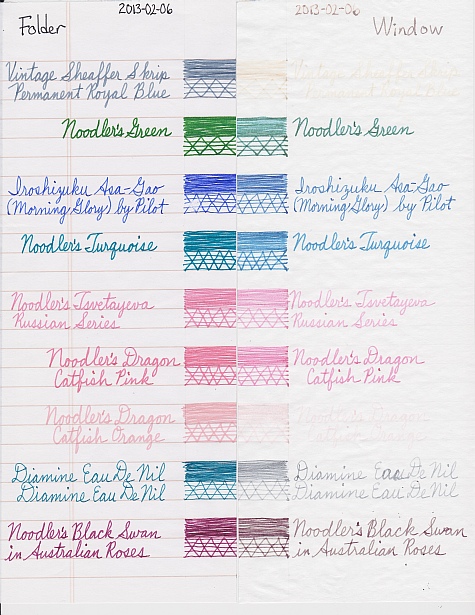 2013-02-06
2013-02-06
Folder
Window
Vintage Sheaffer Skrip
Permanent Royal Blue
Vintage
Noodler's Green
Noodler's Green
Iroshizuku Asa-Gao
(Morning Glory) by Pilot
Iroshizuku Asa-Gao
(Morning Glory) by Pilot
Noodler's Turquoise
Noodler's Turquoise
Noodler's Tsvetayeva
Russian Series
Noodler's Tsvetayeva
Russian Series
Noodler's Dragon
Catfish Pink
Noodler's Dragon
Catfish Pink
Noodler's Dragon
Catfish Orange
Noodler's Dragon
Catfish Orange
Diamine Eau De Nil
Diamine Eau De Nil
Diamine Eau De Nil
Diamine Eau De Nil
Noodler's Black Swan
in Australian Roses
Noodler's Black Swan
in Australian Roses